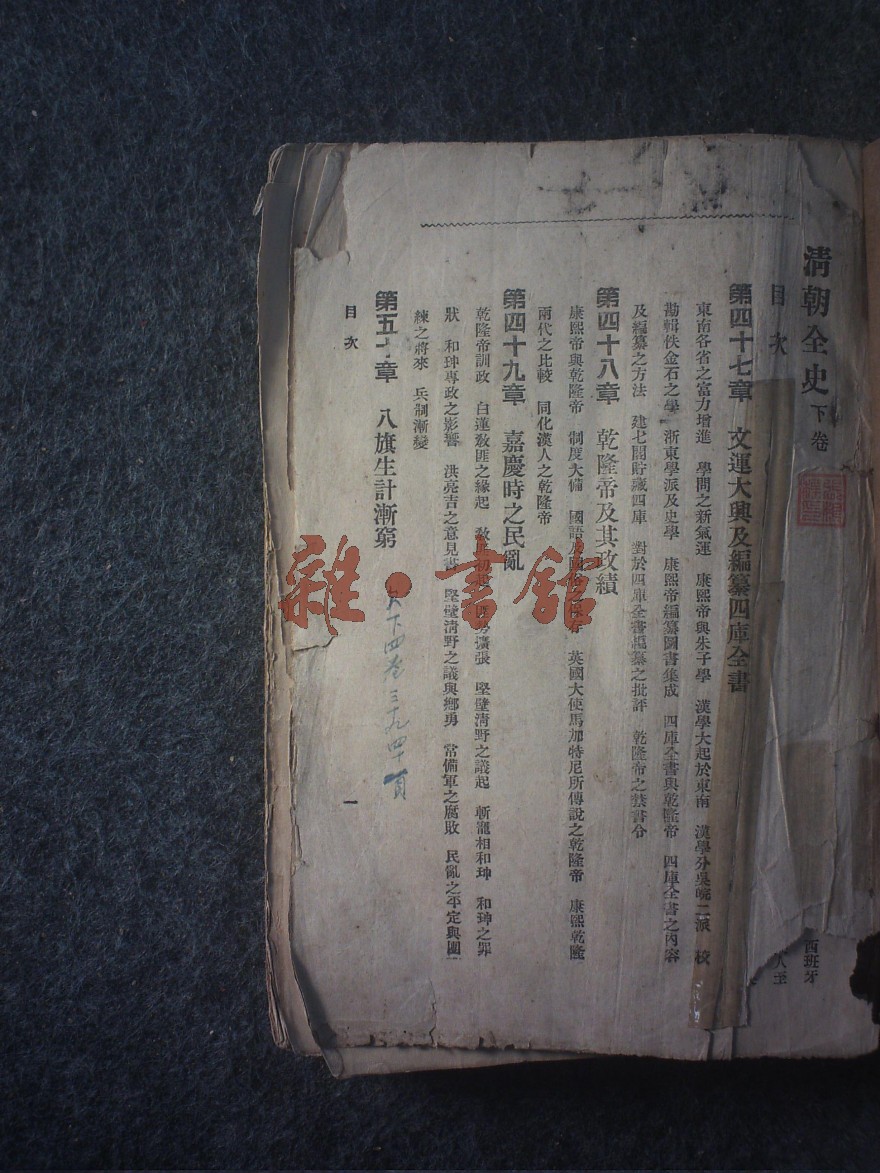 清朝全史 下卷
目次
第四十七章 文運大興及編纂四庫全書
東南各省之富力增進 學問之新氣運 康熙帝與朱子學 漢學大起於東南 漢學分吳皖二派 校
勘輯佚金石之學 浙東學派及史學 康熙帝編纂圖書集成 四庫全書與乾隆帝 四庫全書之內容
及編纂之方法 建七閣貯藏四庫 對於四庫全書編纂之批評 乾隆帝之禁書令
第四十八章 乾隆帝及其政績
康熙帝與乾隆帝 制度大備 國語及 之保存 英國大使馬加特尼所傳說之乾隆帝 康熙乾隆
兩代之比較 同化漢人之乾隆帝
第四十九章 嘉慶時之民亂
乾隆帝訓政 白蓮敎匪之緣起 敎匪初起 匪勢擴張 堅壁清野之議起 斬寵相和珅 和珅之罪
狀 和珅專政之影響 洪亮吉之意見書 堅壁清野之議與鄉勇 常備軍之腐敗 民亂之平定與團
練之將來 兵制漸變
第五十章 八旗生計漸窮
目次
一
下四卷三九四十頁
西班牙
人至
雜·書館